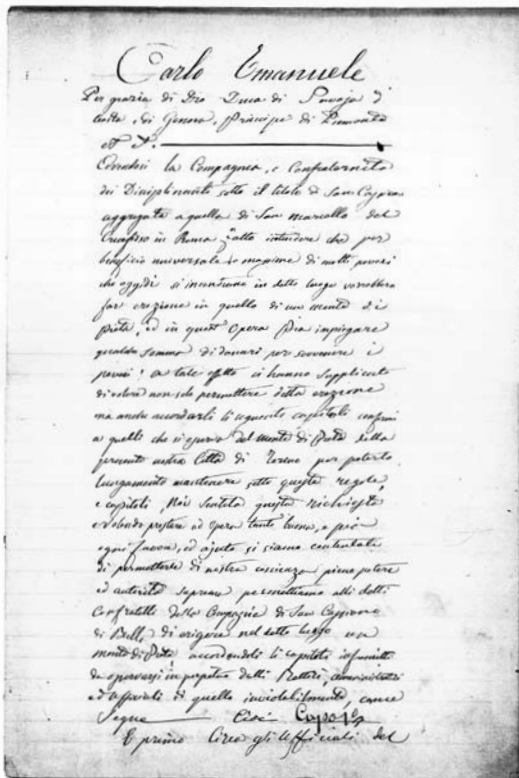 Carlo Emanuele
Per grazia di Dio Duca di Savoja
di Genova, Principe di Piemonte
la Compagnia, e Confraternita
dei Disciplinanti sotto il titolo di San
aggregata a quella di San Marcello del
Crucifisso in Roma fatto intendere che per
beneficio universale e maxime di molti poveri
che oggidì si in detto luogo vorrebbero
far erezione in quello di un monte di
pietà, ed in quest' Opera Pia impiegare
qualche somma di danari per sovvenire i
poveri; a tale effetto ci hanno supplicato
di volerci non solo permettere detta erezione
ma anche accordarli li seguenti capitoli conformi
a quelli che si del monte di Pietà della
presente nostra Città di Torino per poterlo
lungamente mantenere sotto queste regole,
e capitoli, Noi Sentita questa richiesta
e volendo prestare ad opera tanto buona, e pia
ogni favore, ed ajuto si siamo contentati
di permettere di nostra piena potere
ed autorità suprema permettiamo alli detti
Confratelli della Compagnia di San
di di erigere nel detto luogo un
monte di Pietà accordandoli li capitoli infrascritti
da in perpetuo dalli Rettori, amministratori
ed Officiali di quello inviolabilmente, come
Segue Cioè Capo 1°
E primo Circa gli Officiali del